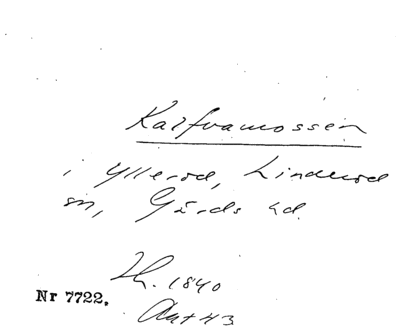 Kalfvamossen
i Yllerod, Linderod
sn, Gärds hd.
Th. 1840
Nr 7722.
Ant 43